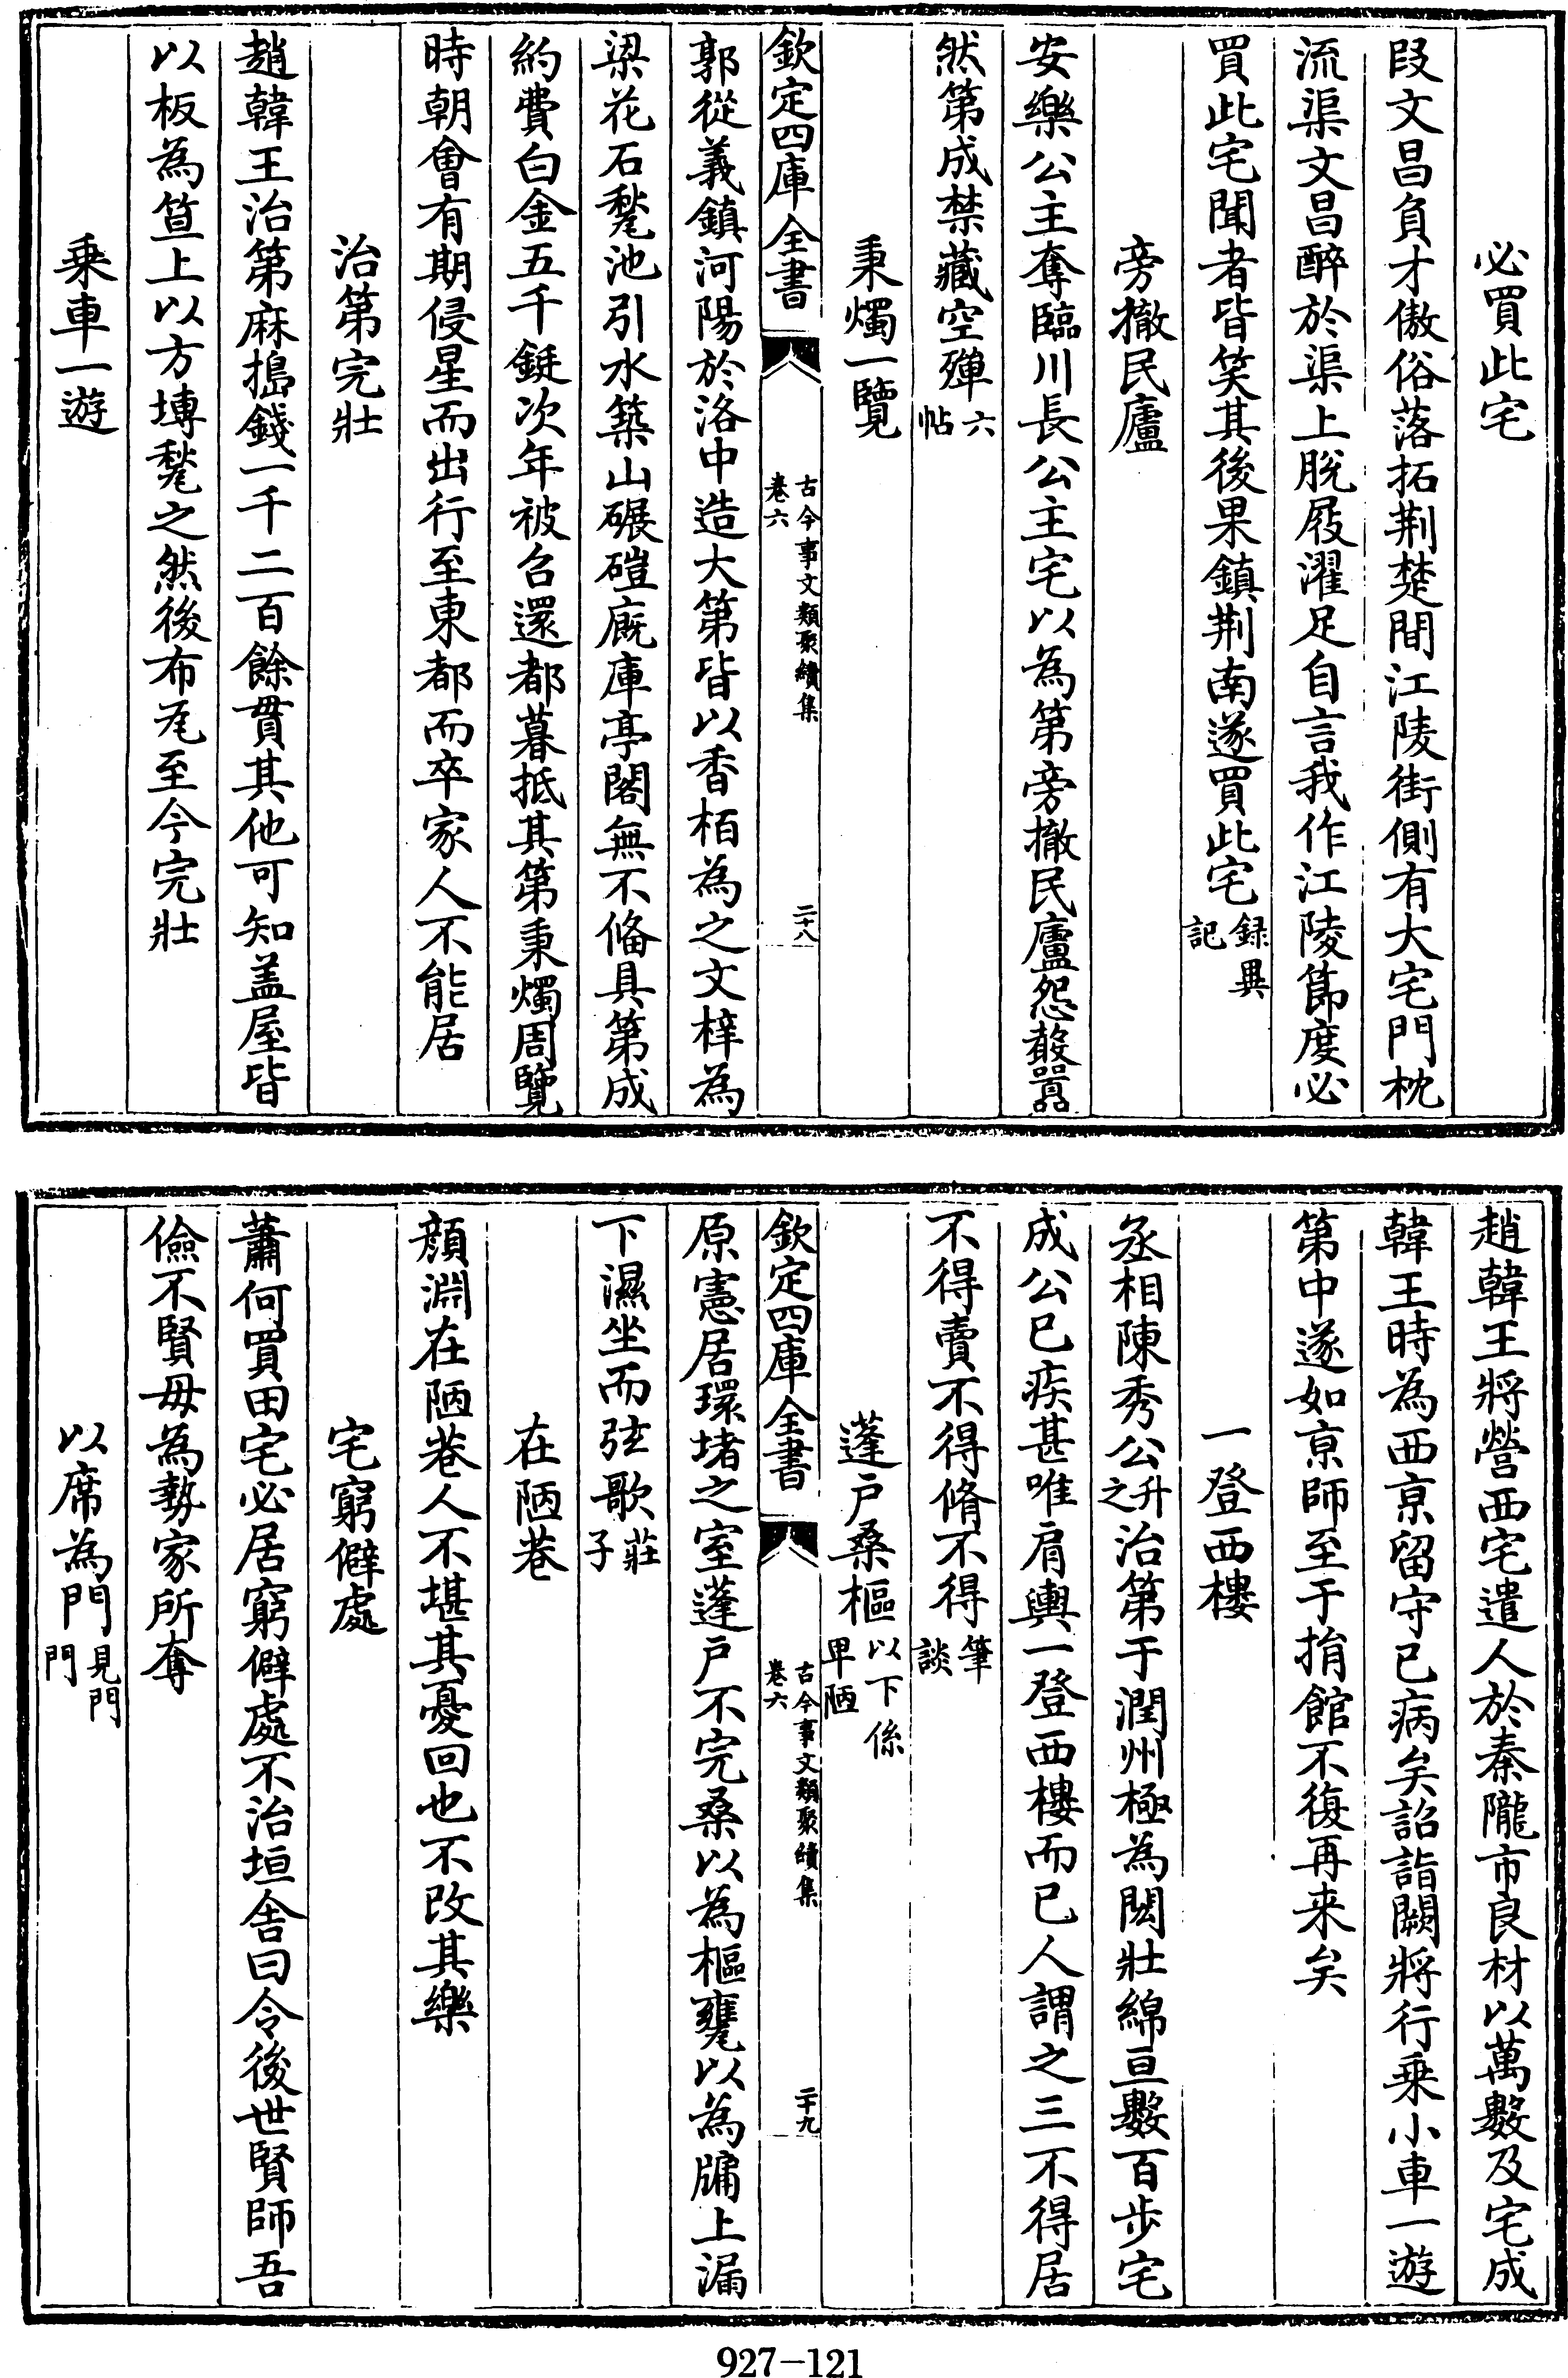 必買此宅
段文昌負才傲俗落拓荆楚間江陵街側有大宅門枕
流渠文昌醉於渠上脫屐濯足自言我作江陵節度必
買此宅聞者皆笑其後果鎮荆南遂買此宅録異記
旁撤民廬
安樂公主奪臨川長公主宅以為第旁撤民廬怨聲嚣
然第成禁藏空殫六帖
秉燭一覽
欽定四庫全書 古今事文類聚續集 卷六 二十八
郭從義鎮河陽於洛中造大第皆以香栢為之文梓為
梁花石甃池引水築山碾磑廐庫亭閣無不俻具第成
約費白金五千鋌次年被召還都暮抵其第秉燭周覽
時朝會有期侵星而出行至東都而卒家人不能居
治第完壯
趙韓王治第麻搗錢一千二百餘貫其他可知盖屋皆
以板為笪上以方塼甃之然後布瓦至今完壯
乗車一遊
趙韓王將營西宅遣人於秦隴市良材以萬數及宅成
韓王時為西京留守已病矣詔詣闕將行乗小車一遊
第中遂如京師至于捐館不復再来矣
一登西樓
丞相陳秀公升之治第于潤州極為閎壯綿亘數百步宅
成公已疾甚唯肩輿一登西樓而已人謂之三不得居
不得賣不得脩不得筆談
蓬户桑樞以下係卑陋
欽定四庫全書 古今事文類聚續集 卷六 二十九
原憲居環堵之室蓬户不完桑以為樞甕以為牖上漏
下濕坐而弦歌莊子
在陋巷
顔淵在陋巷人不堪其憂回也不改其樂
宅窮僻處
蕭何買田宅必居窮僻處不治垣舍曰令後世賢師吾
儉不賢毋為勢家所奪
以席為門見門門
927-121